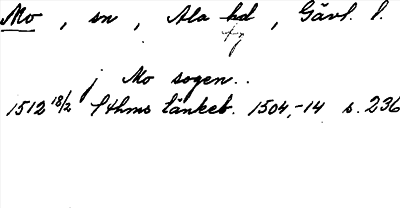 Mo, sn, Ala hd, Gävl. l.
tg
j Mo sogen..
1512 18/2 Sthms tänkeb. 1504,-14 s. 236